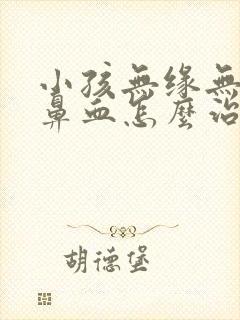 小孩無緣無
鼻血怎麼治
胡德堡